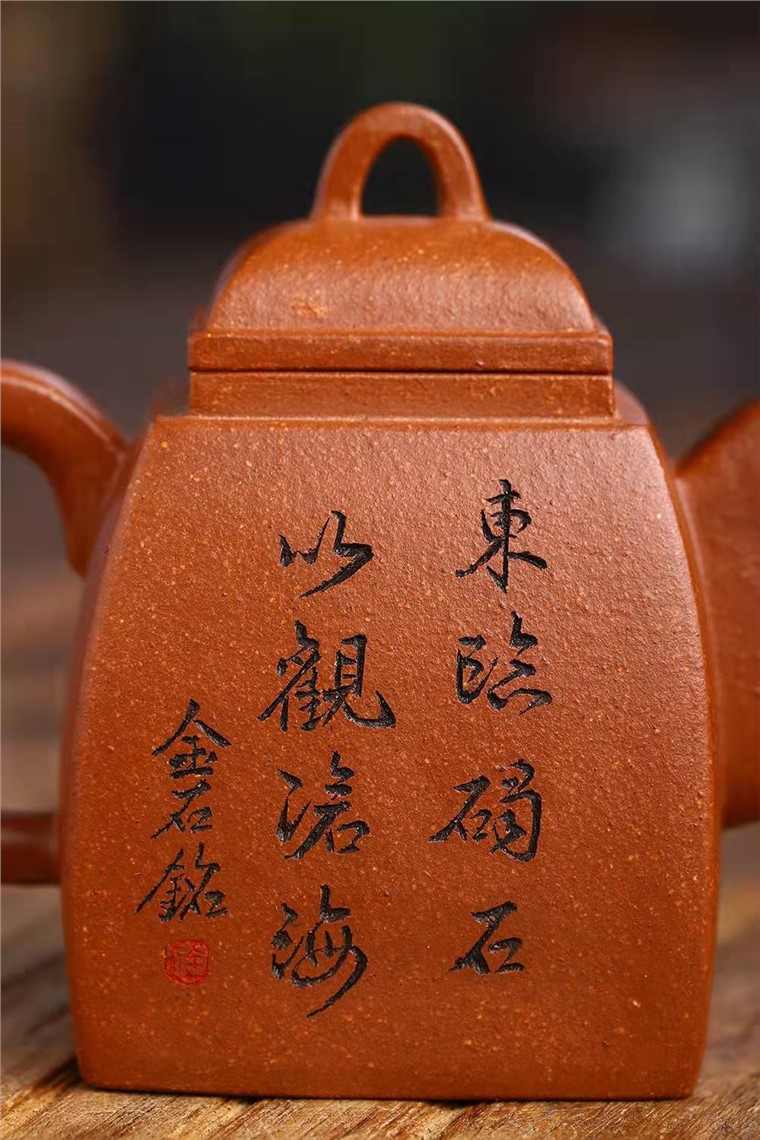 東臨碣石
以觀滄海
金石銘